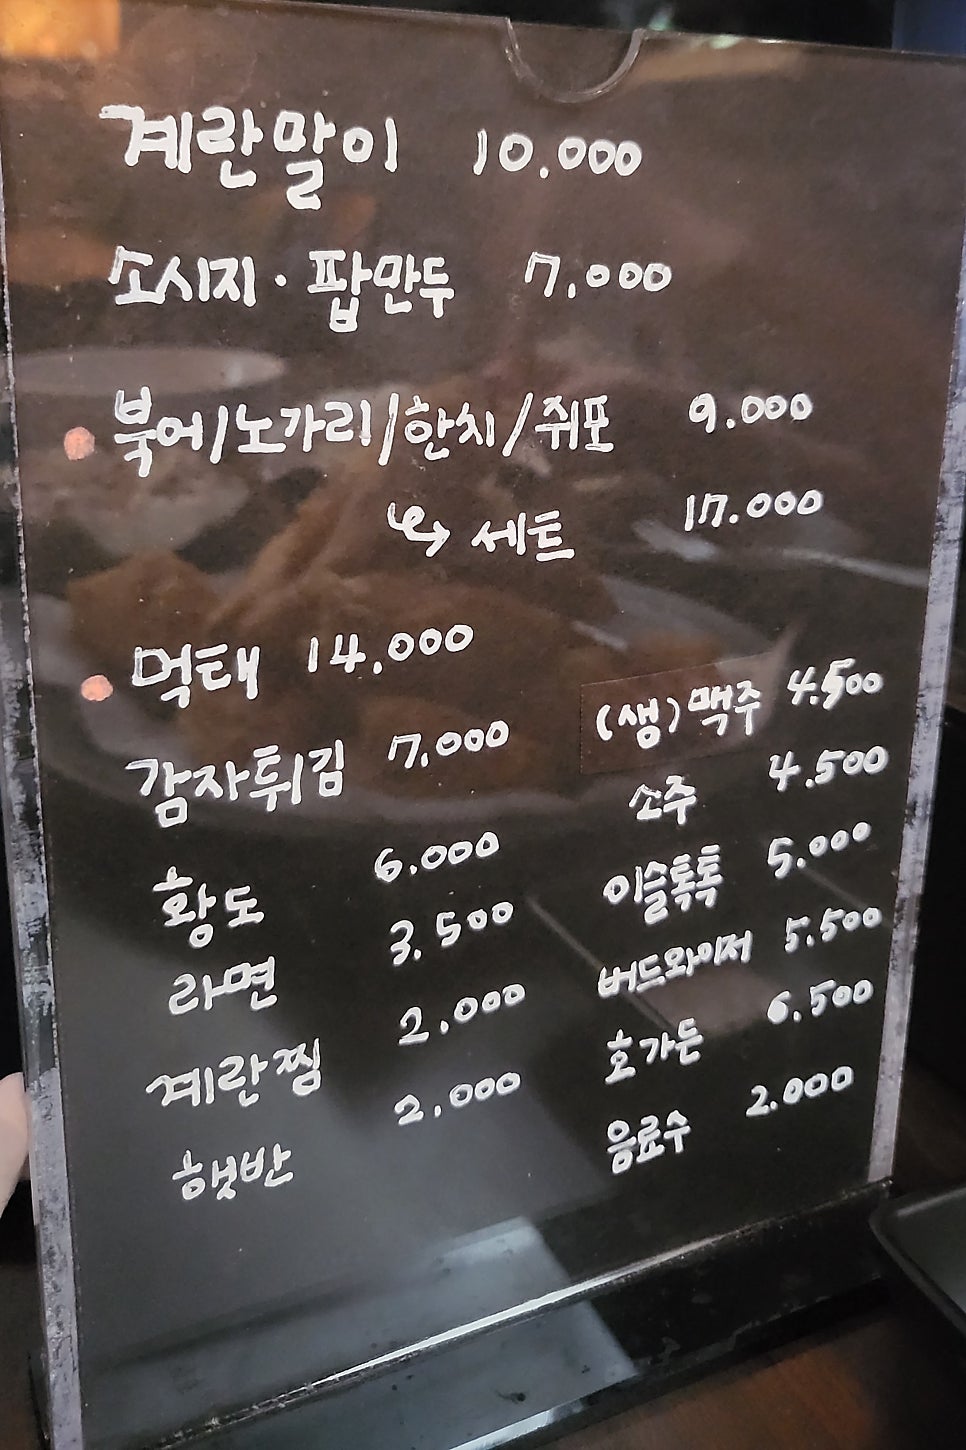 계란말이 10.000
소시지·팝만두 7.000
북어/노가리/한치/쥐포 9.000
↳ 세트 17.000
먹태 14.000
감자튀김 7.000
황도 6.000
라면 3.500
계란찜 2.000
햇반 2.000
(생)맥주 4.500
소주 4.500
이슬톡톡 5.000
버드와이저 5.500
호가든 6.500
음료수 2.000